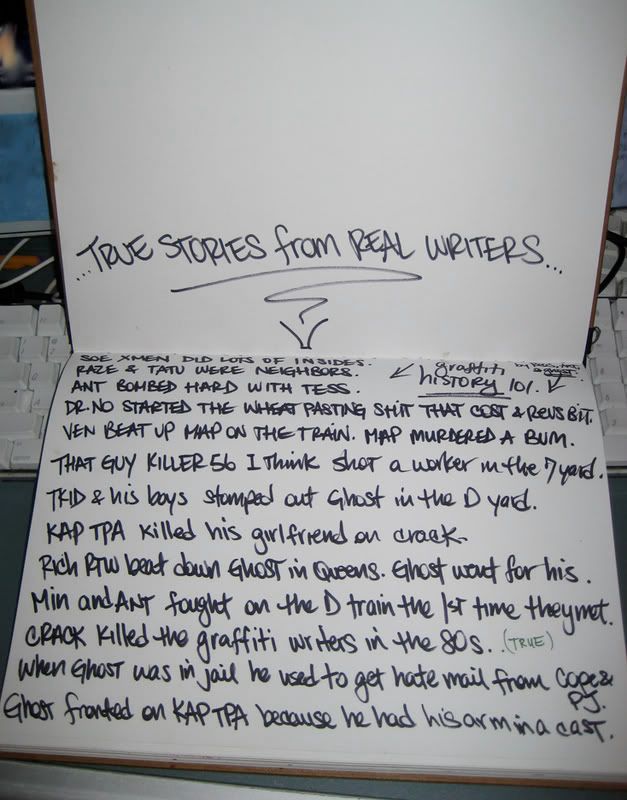 ...TRUE STORIES from REAL WRITERS...
SOE XMEN DID LOTS OF INSIDES.
RAZE & TATU WERE NEIGHBORS.
graffiti
history 101.
ANT BOMBED HARD WITH TESS.
DR. NO STARTED THE WHEAT PASTING SHIT THAT COST & REVS BIT.
VEN BEAT UP MAP ON THE TRAIN. MAP MURDERED A BUM.
THAT GUY KILLER 56 I THINK SHOT a worker in the 7 yard.
TKID & his boys stomped out Ghost in the D yard.
KAP TPA killed his girlfriend on crack.
Rich RTW beat down GHOST in Queens. Ghost went for his.
Min and ANT fought on the D train the 1st time they met.
CRACK killed the graffiti writers in the 80s. (TRUE)
When GHOST was in jail he used to get hate mail from Cope &
PJ.
Ghost fronted on KAP TPA because he had his arm in a cast.